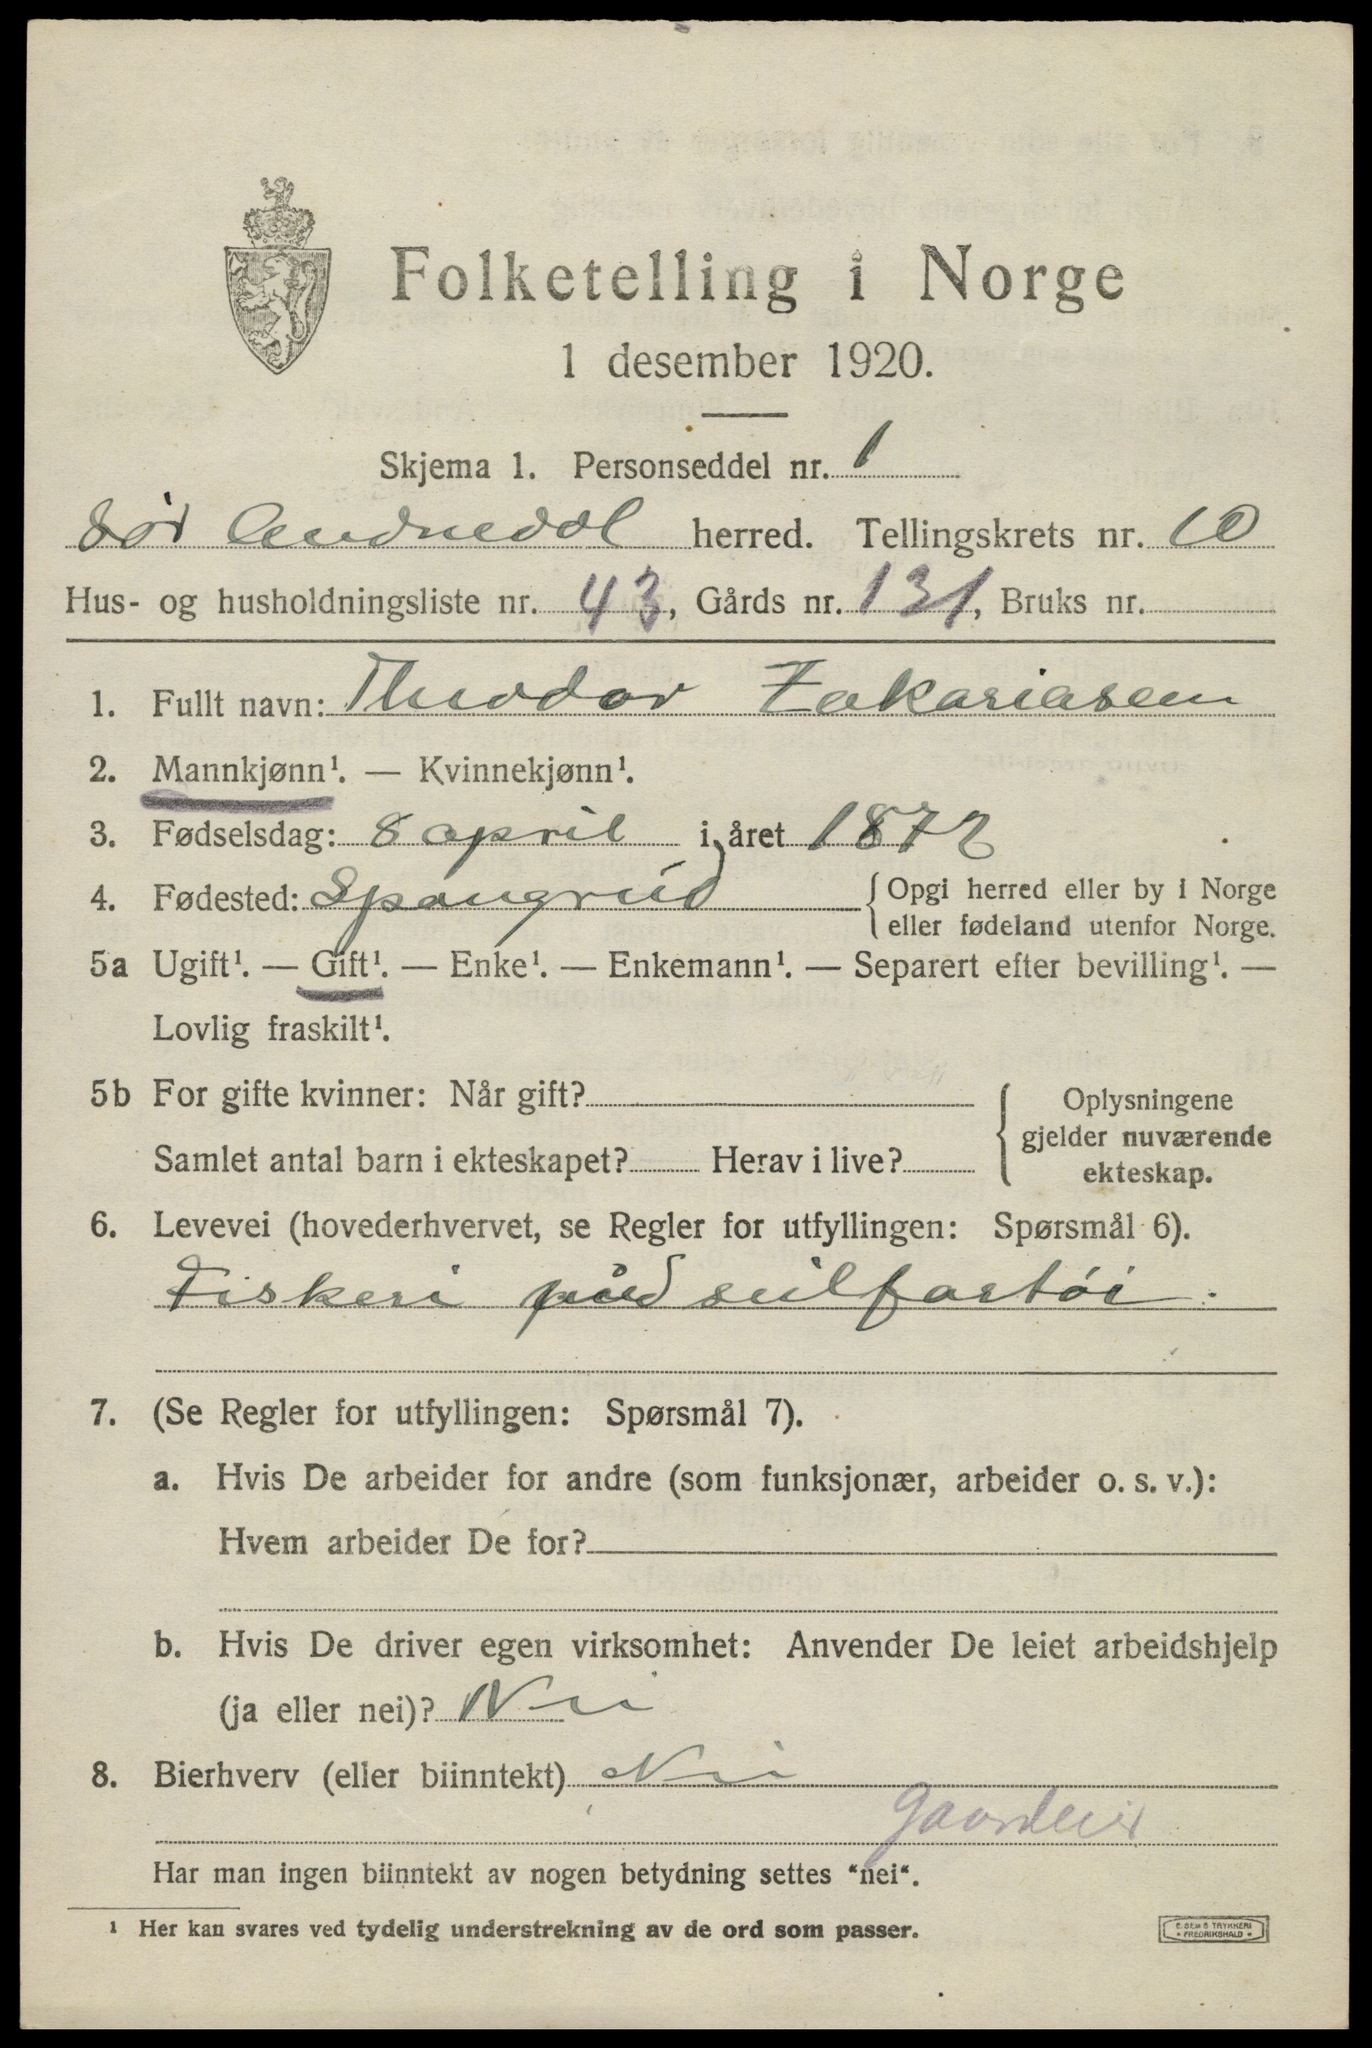 Folketelling i Norge
1 desember 1920.
Skjema 1. Personseddel nr. 1
Sør Audnedal herred. Tellingskrets nr. 10
Hus- og husholdningsliste nr. 43, Gårds nr. 131, Bruks nr.
1. Fullt navn: Theodor Zakariasen
2. Mannkjønn¹. — Kvinnekjønn¹.
3. Fødselsdag: 8 april i året 1872
4. Fødested: Spangrud { Opgi herred eller by i Norge
eller fødeland utenfor Norge.
5a Ugift¹. — Gift¹. — Enke¹. — Enkemann¹. — Separert efter bevilling¹. —
Lovlig fraskilt¹.
5b For gifte kvinner: Når gift? { Oplysningene
gjelder nuværende
Samlet antal barn i ekteskapet? Herav i live?
ekteskap.
6. Levevei (hovederhvervet, se Regler for utfyllingen: Spørsmål 6).
Fiskeri seilfartøi.
7. (Se Regler for utfyllingen: Spørsmål 7).
a. Hvis De arbeider for andre (som funksjonær, arbeider o. s. v.):
Hvem arbeider De for?
b. Hvis De driver egen virksomhet: Anvender De leiet arbeidshjelp
(ja eller nei)? Nei
8. Bierhverv (eller biinntekt) Nei
Har man ingen biinntekt av nogen betydning settes "nei".
¹ Her kan svares ved tydelig understrekning av de ord som passer.
E. SEM'S TRYKKERI
• FREDRIKSHALD •